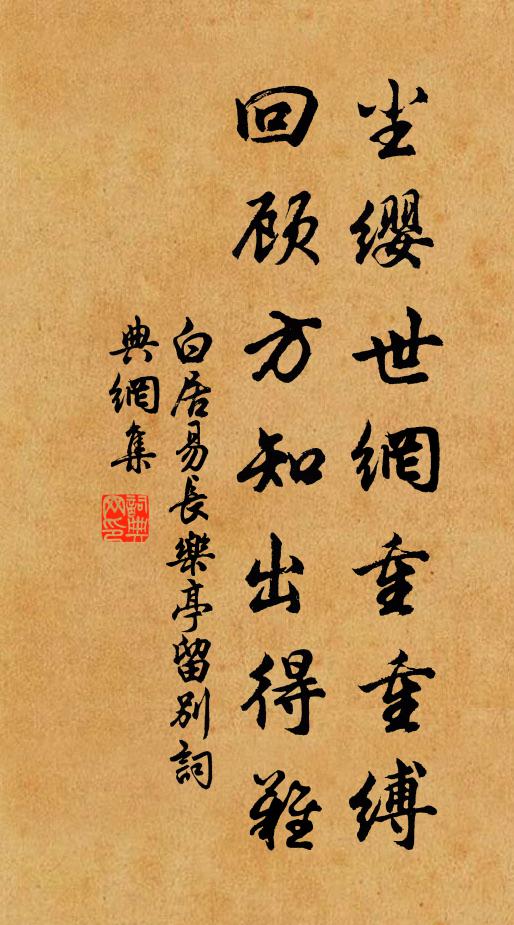 尘缨世網重重缚
回顾方知出得難
白居易长樂亭留别詞
典網集
詞典網印